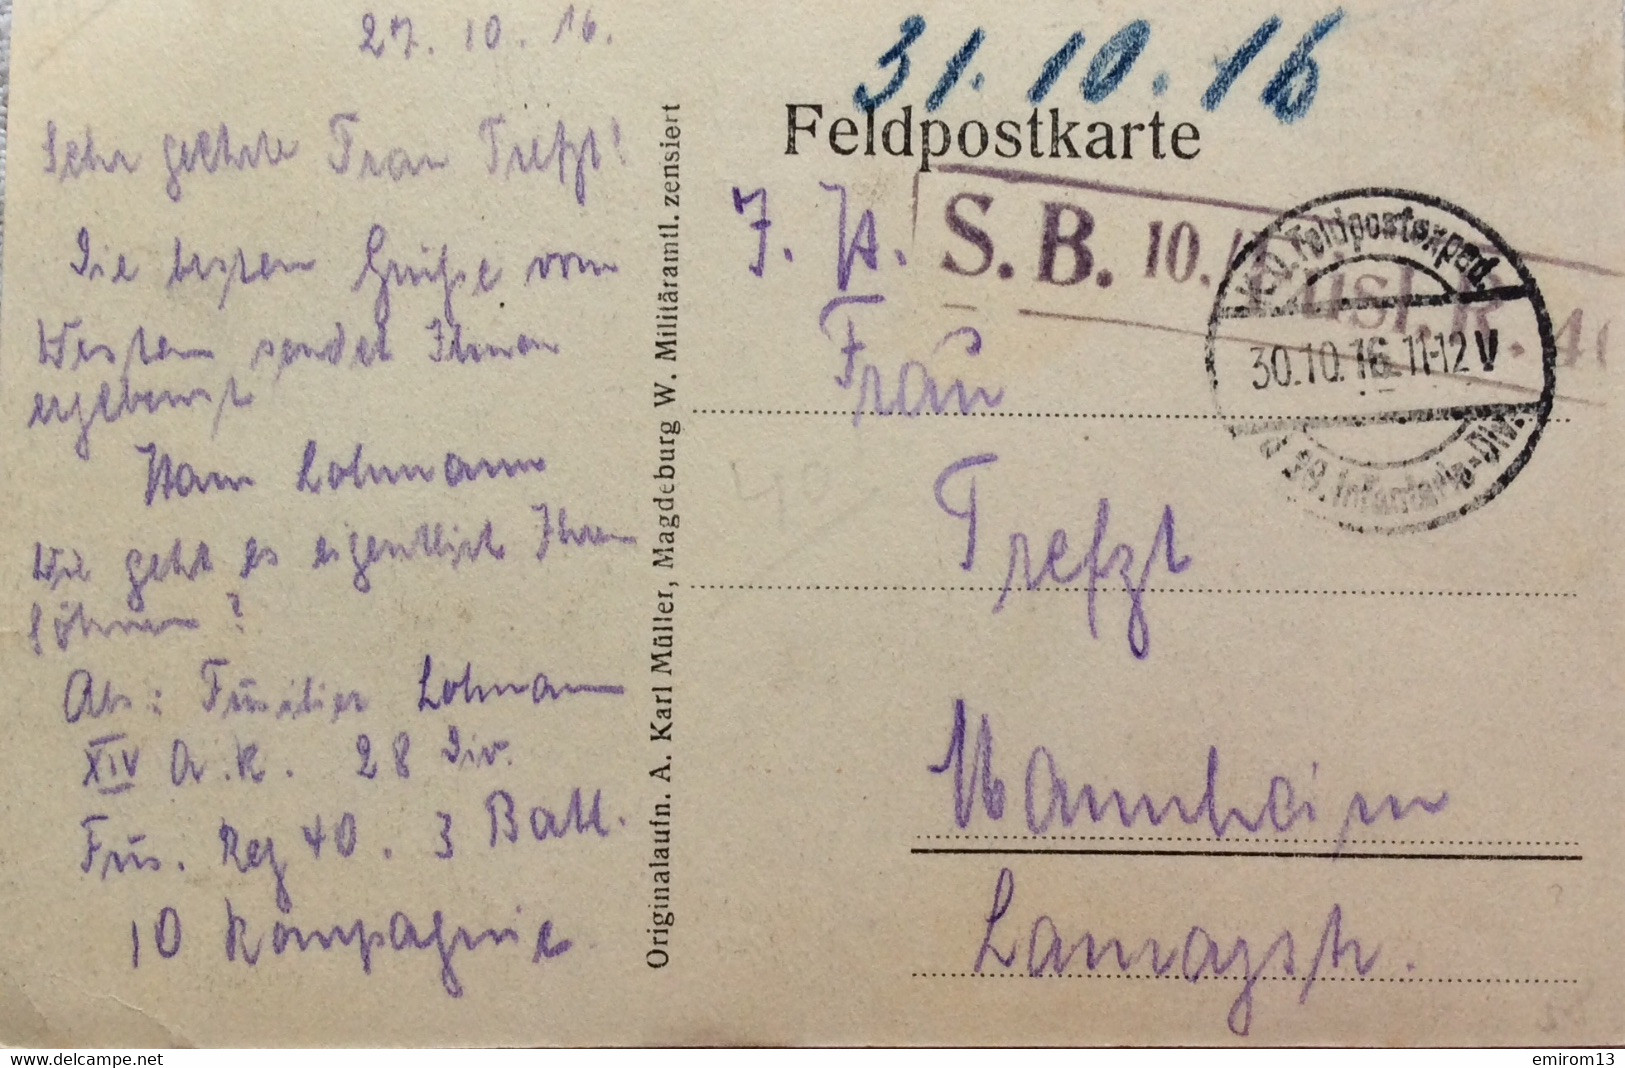 27. 10. 16.
Sehr geehrte Frau Trefzt!
Die besten Grüße vom
Westen sendet Ihnen
ergebenst
Hans Lohmann
Wie geht es eigentlich Ihren
Söhnen?
Abs: Füsilier Lohmann
XIV A.K. 28 Div.
Füs. Reg 40. 3 Batl.
10 Kompagnie
Originalaufn. A. Karl Müller, Magdeburg W. Militäramtl. zensiert
31.10.16
Feldpostkarte
S. B. 10./Füsl. R. 40
Feldpostexped.
30.10.16. 11-12 V
Infanterie-Div.
Frau
Trefzt
Mannheim
delcampe.net
emirom13